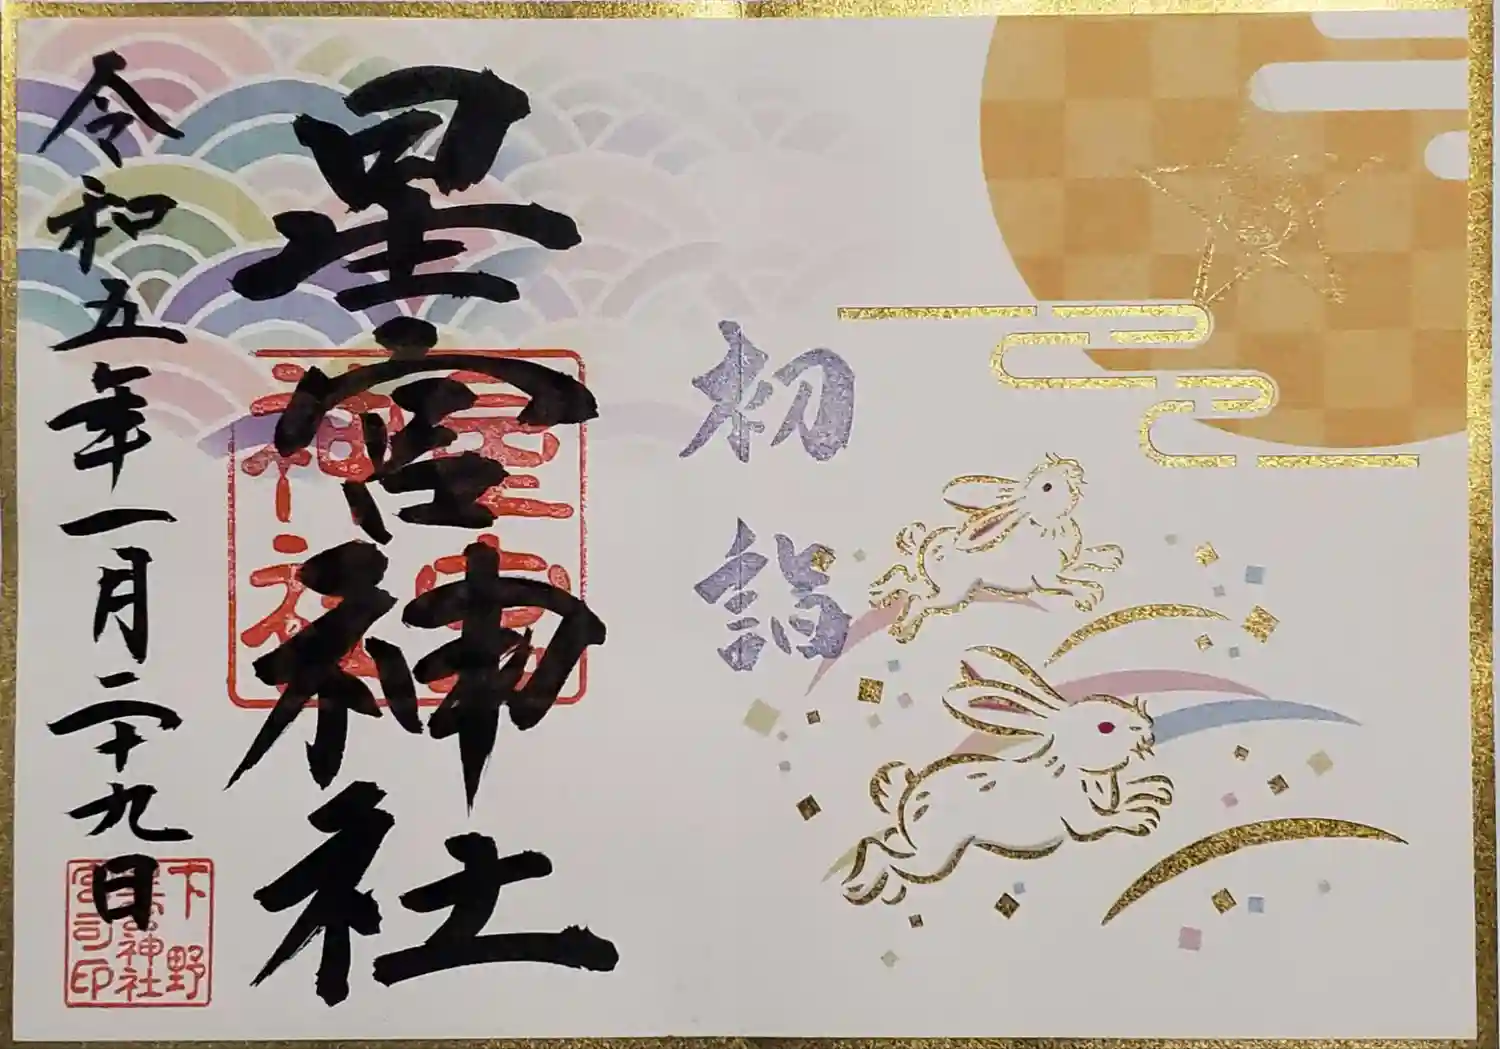 初詣
星宮神社
星宮
神社
令和五年一月二十九日
下野
星宮神社
宮司印